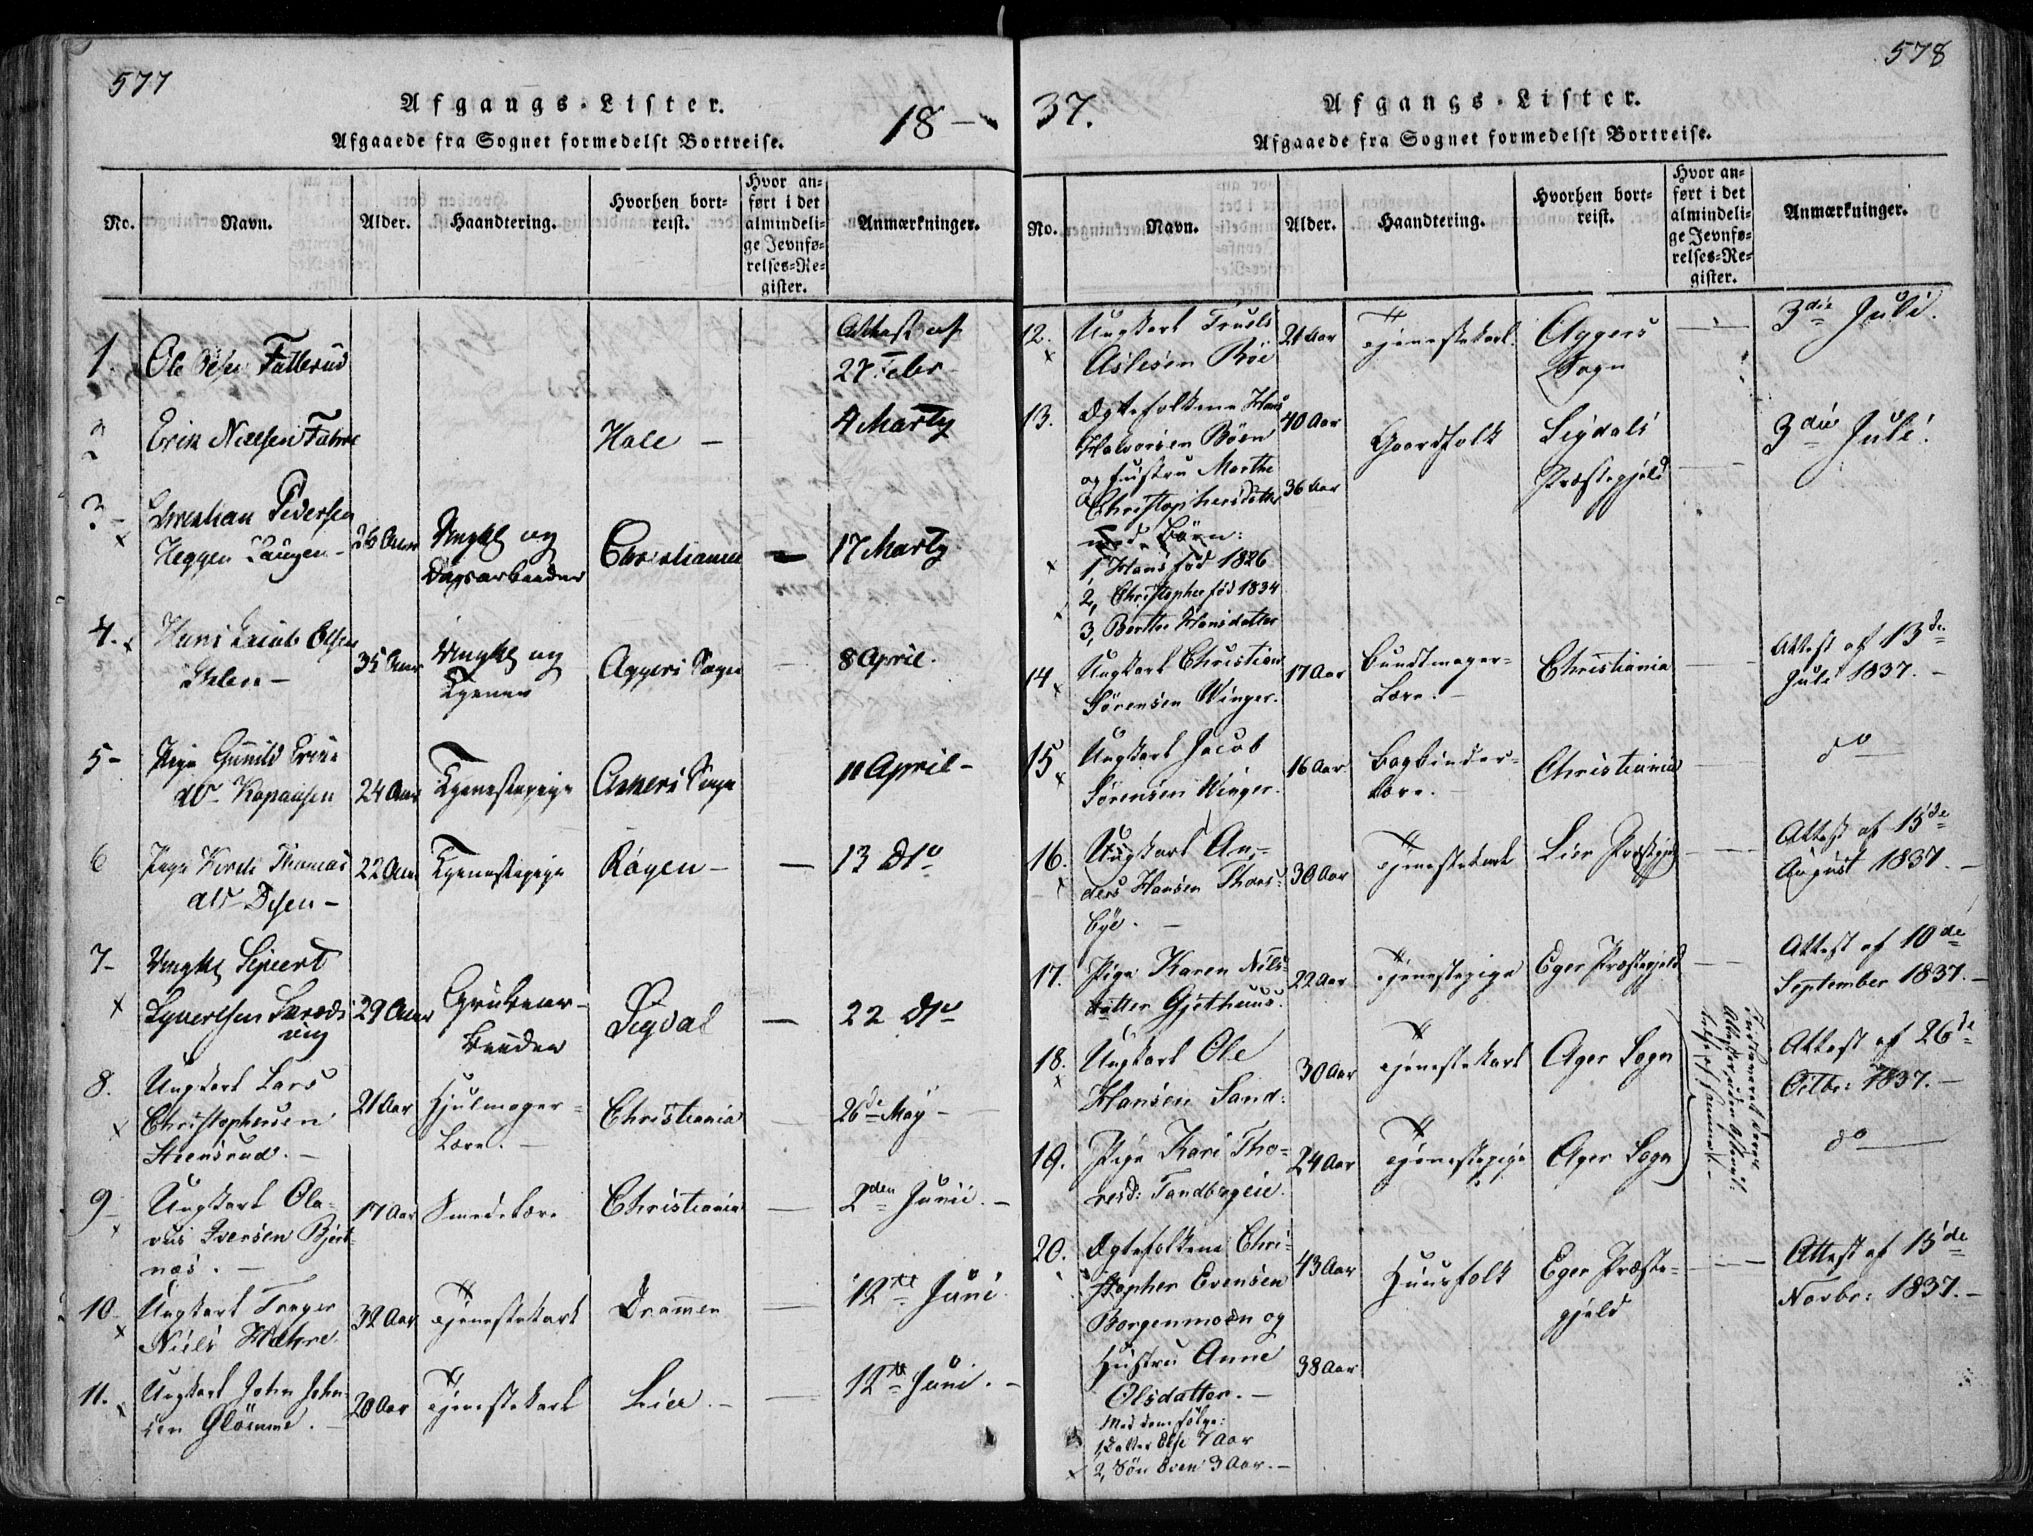 577
Afgangs-Lister.
18-37.
Afgaaede fra Sognet formedelst Bortreise.
No.
Navn.
Alder.
Haandtering.
Hvorhen bort-
reist.
Hvor an-
ført i det
almindeli-
ge Jevnfø-
relses-Re-
gister.
Anmærkninger.
1. Ole Fallerud
Attest af
27 Febr
2 Erik Nielsen Hole - 4 Marty
3- Christian Pedersen
Heggen 26 Aar Ungkl og
Dagsarbeider Christiania - 17 Marty
4. Hans Jacob Olsen
Ihlen - 35 Aar Ungkl og
Tjener Aggers Sogn - 8 April.
5- Pige Gunild
24 Aar Tjenestepige Askers Sogn 11 April -
6 Pige Thomas
dtr 22 Aar Tjenestepige Røgen - - 13 Dto
7- Ungkl Sivert
29 Aar Grubear-
beider Sigdal - 22 Dto
8. Ungkarl Lars
Christophersen
Steensrud. - 21 Aar Hjulmager-
Lære. - Christiania - 26de May -
9- Ungkarl Ola-
vus Iversen Bjert-
næs. - 17 Aar Smedelære Christiania - 2den Junii. -
10. Ungkarl Torger
Niels Hahre 32 Aar Tjenestekarl Dramen - 12te Juni.
11. Ungkarl John John-
sen Glömme. - 20 Aar Tjenestekarl Lier. - - 12te Juni. -
578
Afgangs-Lister.
Afgaaede fra Sognet formedelst Bortreise.
No.
Navn.
Alder.
Haandtering.
Hvorhen bort-
reist.
Hvor an-
ført i det
almindeli-
ge Jevnfø-
relses-Re-
gister.
Anmærkninger.
12. Ungkarl Truels
Aslesen Röe 21 Aar Tjenestekarl. Aggers
Sogn - 3die Juli.
13. Ægtefolkene Hans
Halvorsen Böen 40 Aar
og Hustru Marthe
Christophersdatter 36 Aar
Gaardfolk Sigdals
Præstegjeld - 3die Juli.
med Börn:
1, Hans föd 1826
2, Christopher föd 1834
3, Berthe Hansdatter
14 Ungkarl Christian
Sörensen Winger. 17 Aar Bundtmager-
Lære. - Christiania - Attest af 13de
Juli 1837. -
15 Ungkarl Jacob
Sörensen Winger. 16 Aar Bogbinder-
Lære. - Christiania - do -
16. Ungkarl An-
ders Hansen Thors-
bye. - 30 Aar Tjenestekarl Lier Præstegj - Attest af 15de
August 1837. -
17. Pige Karen Nils-
datter Gjethuus. 22 Aar Tjenestepige Eger Præstegjeld - Attest af 10de
September 1837. -
18. Ungkarl Ole
Hansen Sand: 30 Aar Tjenestekarl Ager Sogn Attest af 26de
Octbr: 1837. -
19. Pige Kari Tho-
resd: Tandbergeie. 24 Aar Tjenestepige Ager Sogn do -
20. Ægtefolkene Chri-
stopher Evensen
Borgenmoen og 43 Aar
Hustru Anne
Olsdatter. - 38 Aar
Huusfolk Eger Præste-
gjeld - Attest af 15de
Novbr: 1837. -
Med dem fölge:
1, Datter Else 7 Aar
2, Sön Even 3 Aar. -